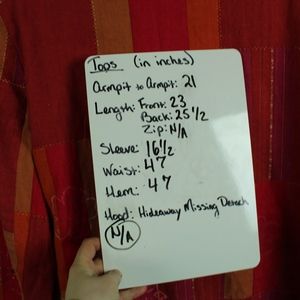 Tops (in inches)
Armpit to Armpit: 21
Length: Front: 23
Back: 25 1/2
Zip: N/A
Sleeve: 16 1/2
Waist: 47
Hem: 47
Hood: Hideaway Missing Detach
N/A